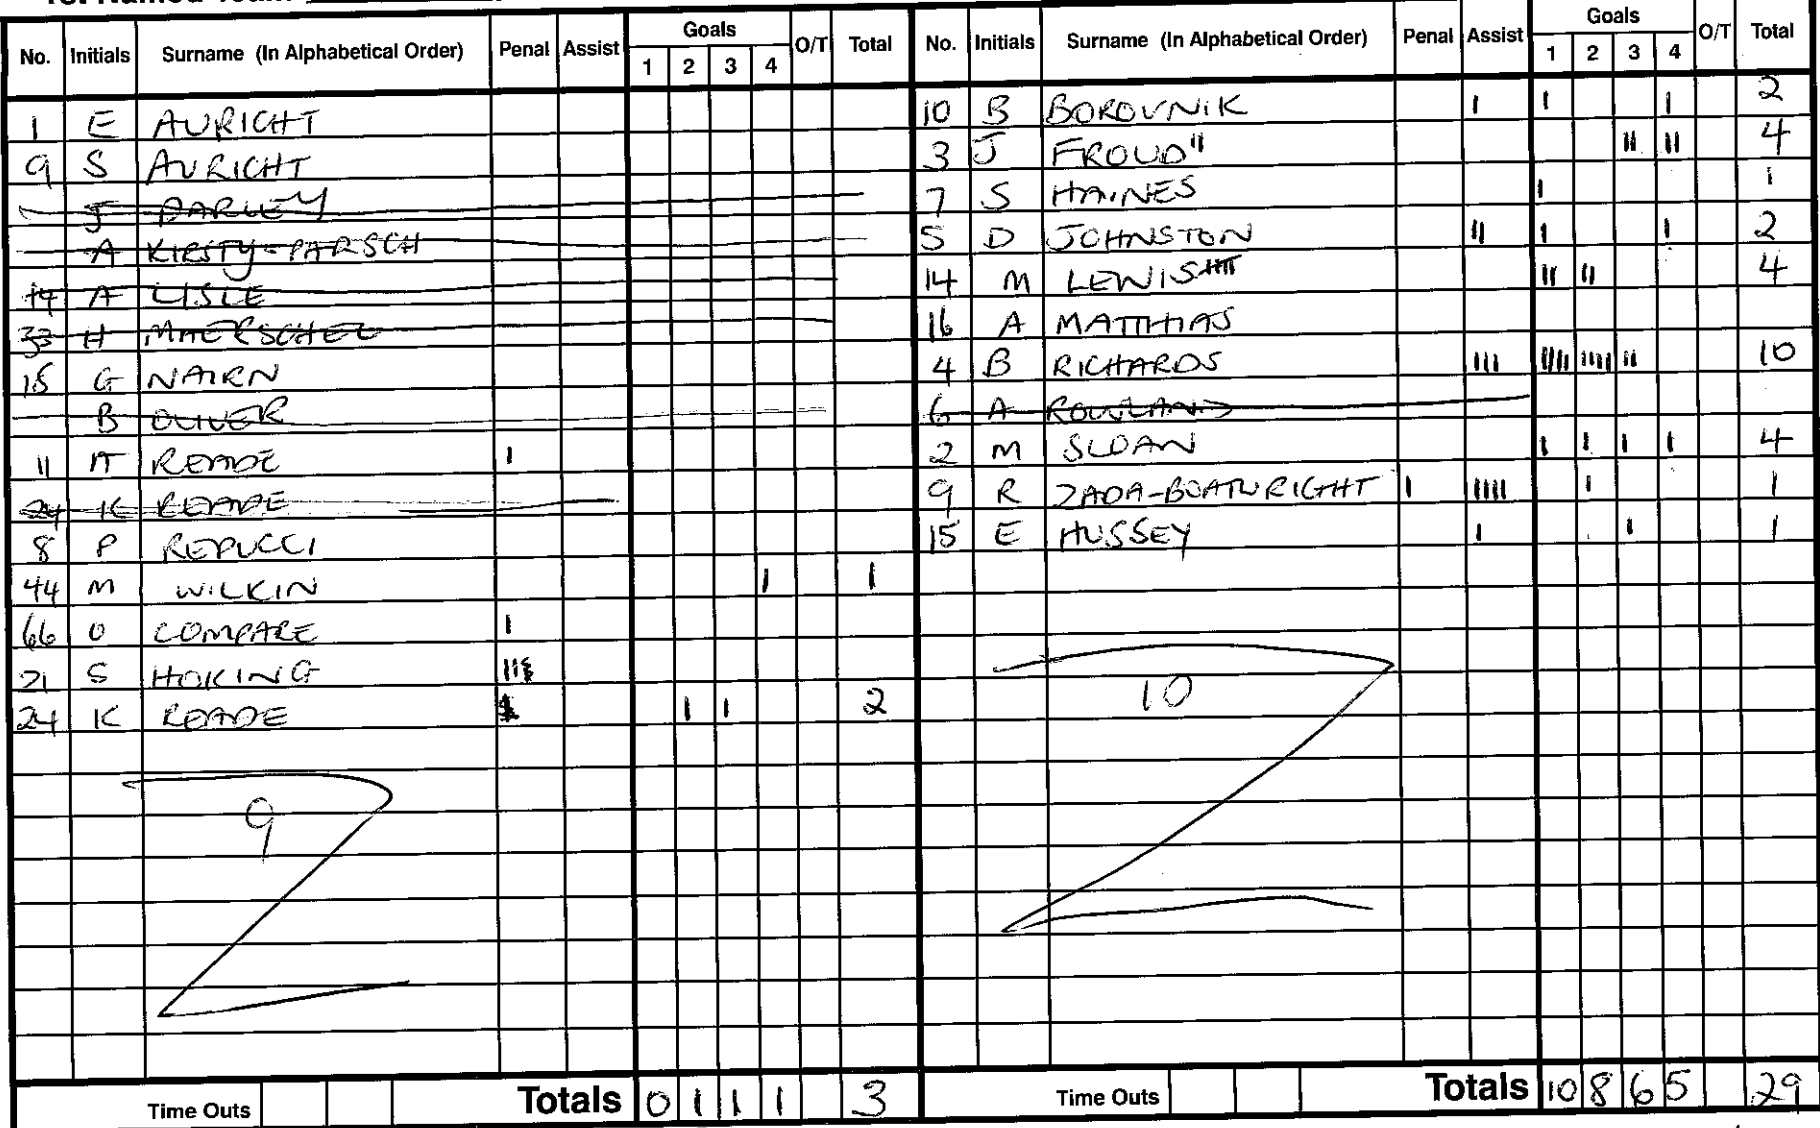 No. Initials Surname (In Alphabetical Order) Penal Assist Goals 1 2 3 4 O/T Total
1 E AURICHT
9 S AURICHT
J DARLEY
A KIRSTY-PARSCH
14 A LISLE
33 H MAERSCHEL
15 G NAIRN
B OLIVER
11 A READE I
24 K READE
8 P REPUCCI
44 M WILKIN I 1
66 O COMPARE I
21 S HOKING III
24 K READE I I 2
9
Time Outs Totals 0 1 1 1 3
No. Initials Surname (In Alphabetical Order) Penal Assist Goals 1 2 3 4 O/T Total
10 B BOROVNIK I I I 2
3 J FROUD II II II 4
7 S HAINES I 1
5 D JOHNSTON II I I 2
14 M LEWIS IIII II II 4
16 A MATTHIAS
4 B RICHARDS III IIII IIII II 10
6 A ROWLAND
2 M SLOAN I I I I 4
9 R ZADA-BOATWRIGHT I IIIII I 1
15 E HUSSEY I I 1
10
Time Outs Totals 10 8 6 5 29